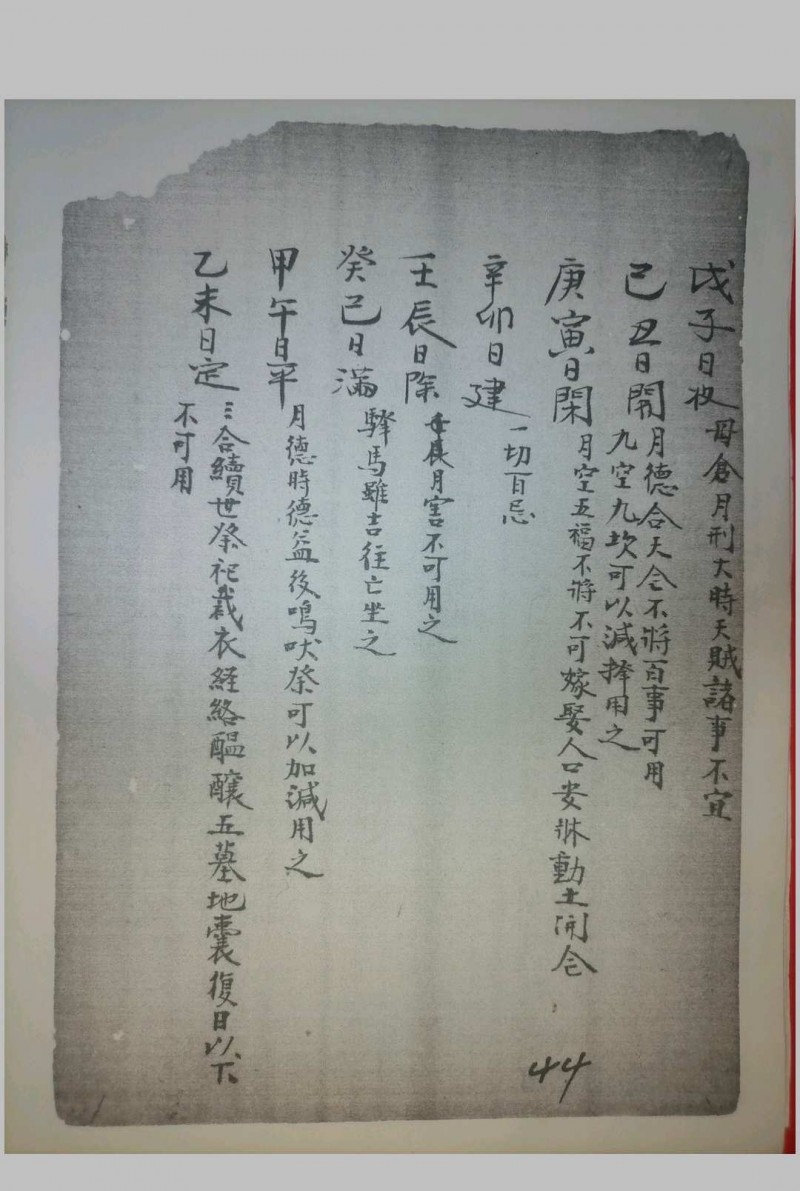 戊子日收 母倉月刑大時天賊諸事不宜
己丑日開 月德合天仓不將百事可用
九空九坎可以減擇用之
庚寅日閑 月空五福不將不可嫁娶人口安牀動土開仓
辛卯日建 一切百忌
壬辰日除 月害不可用之
癸己日滿 驛馬雖吉往亡坐之
甲午日平 月德時德益後鳴吠祭可以加減用之
乙未日定 三合續世祭祀裁衣経絡醖釀五墓地囊復日以下
不可用
44